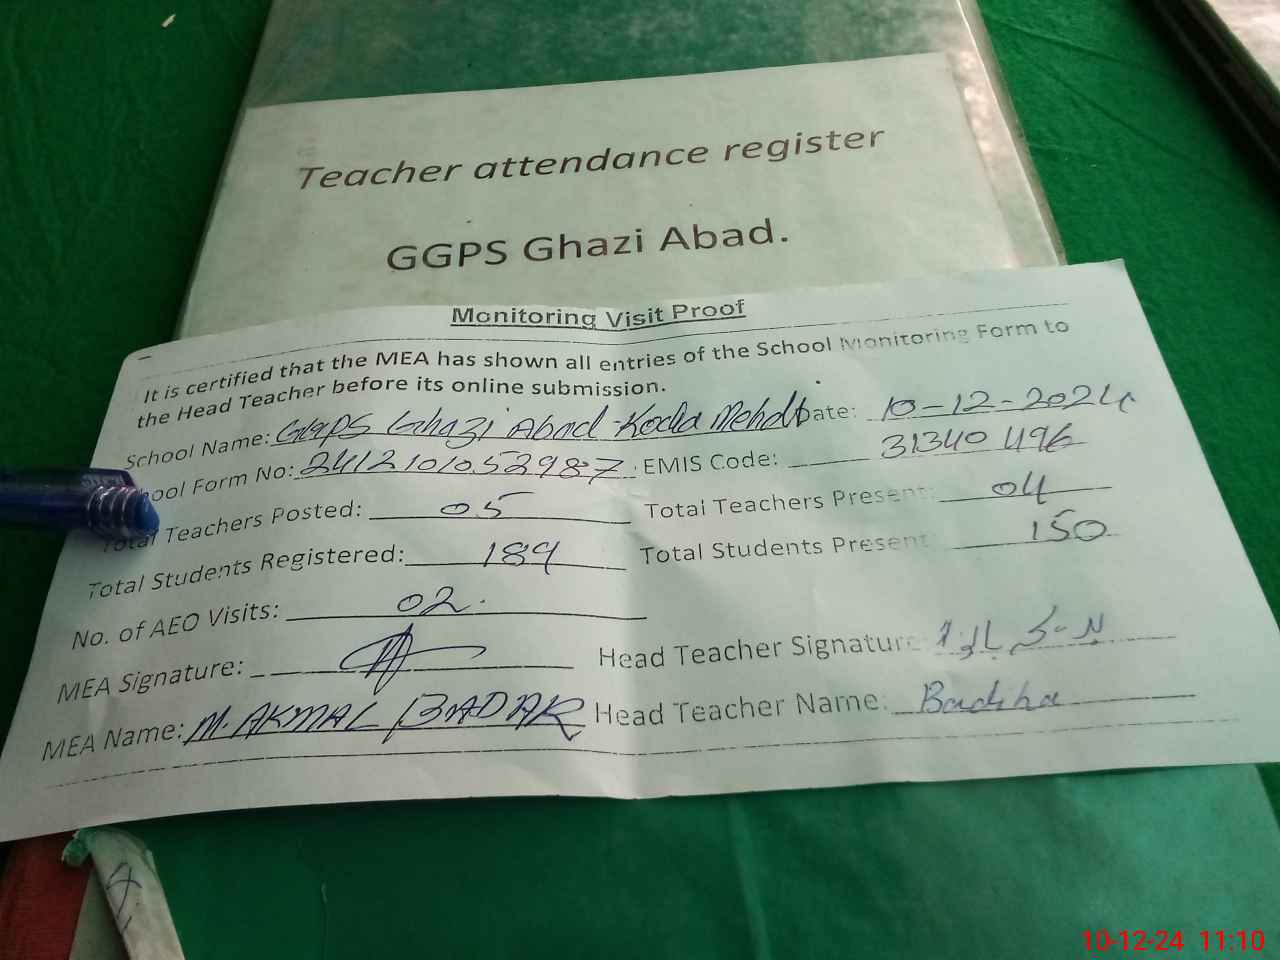 Teacher attendance register
GGPS Ghazi Abad.
Monitoring Visit Proof
It is certified that the MEA has shown all entries of the School Monitoring Form to
the Head Teacher before its online submission.
School Name: GGPS Ghazi Abad Date: 10-12-2024
hool Form No: 2412101052987 EMIS Code: 31340496
Total Teachers Posted: 05 Total Teachers Present: 04
Total Students Registered: 189 Total Students Present 150
No. of AEO Visits: 02.
MEA Signature: Head Teacher Signature:
MEA Name: M. AKMAL BADAR Head Teacher Name:
10-12-24 11:10